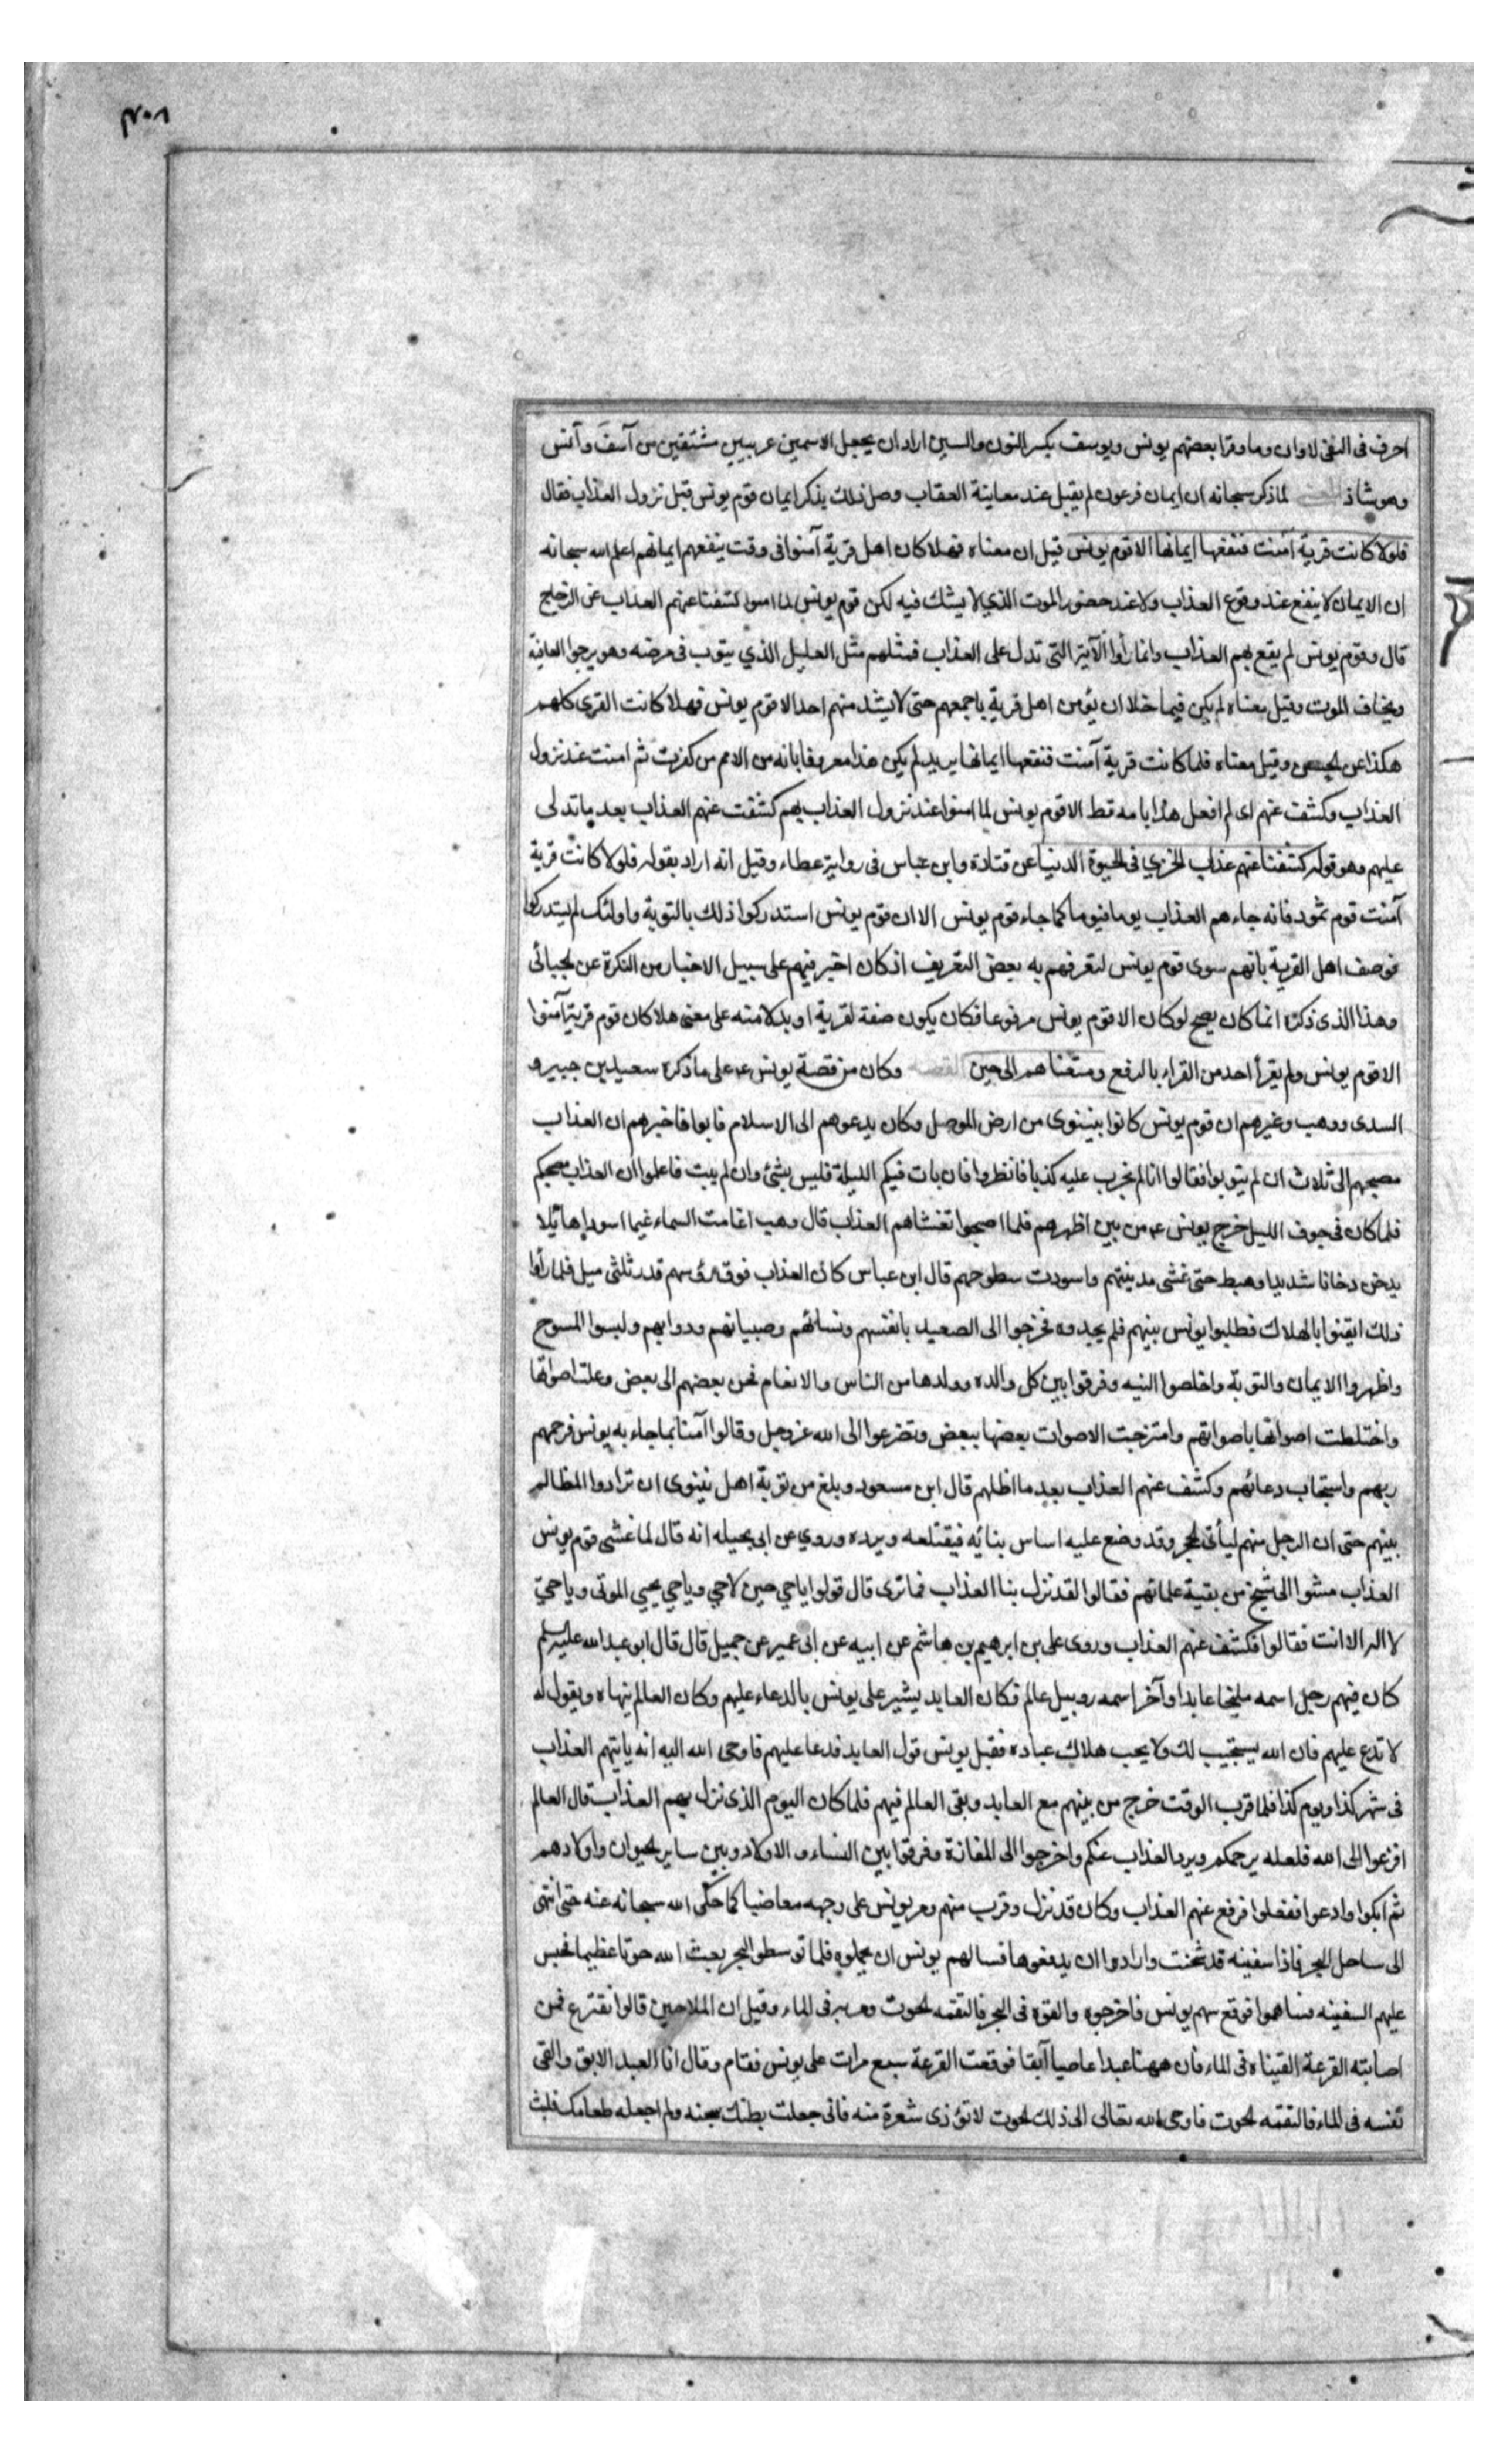 احرف فى النفى لا وان وما وقرا بعضهم يونس ويوسف بكسر النون والسين اراد ان يجعل الاسمين عربيين مشتقين من آسف وآنس
وهو شاذ المعنى لما ذكر سبحانه ان ايمان فرعون لم يقبل عند معاينة العقاب وصل ذلك بذكر ايمان قوم يونس قبل نزول العذاب فقال
فلولا كانت قرية آمنت فنفعها ايمانها الا قوم يونس قيل ان معناه فهلا كان اهل قرية آمنوا فى وقت ينفعهم ايمانهم اعلم الله سبحانه
ان الايمان لا ينفع عند وقوع العذاب ولا عند حضور الموت الذي لا يشك فيه لكن قوم يونس لما امنوا كشفنا عنهم العذاب عن الزجاج
قال وقوم يونس لم يقع بهم العذاب وانما رأوا الآية التى تدل على العذاب فمثلهم مثل العليل الذي يتوب فى مرضه وهو يرجوا العافية
ويخاف الموت وقيل معناه لم يكن فيما خلا ان يؤمن اهل قرية باجمعهم حتى لا يشذ منهم احد الا قوم يونس فهلا كانت القرى كلهم
هكذا عن الحسن وقيل معناه فلما كانت قرية آمنت فنفعها ايمانها يريد لم يكن هذا معروفا بانه من الامم من كفرت ثم امنت عند نزول
العذاب وكشفت عنهم اى لم افعل هذا بامه قط الا قوم يونس لما امنوا عند نزول العذاب بهم كشفت عنهم العذاب بعد ما تدلى
عليهم وهو قوله كشفنا عنهم عذاب الخزي فى الحيوة الدنيا عن قتادة وابن عباس فى رواية عطاء وقيل انه اراد بقوله فلولا كانت قرية
آمنت قوم ثمود فانه جاءهم العذاب يوما فيوما كما جاء قوم يونس الا ان قوم يونس استدركوا ذلك بالتوبة واولئك لم يستدركوا
فوصف اهل القرية بانهم سوى قوم يونس لتعرفهم به بعض التعريف اذ كان اخبر فيهم على سبيل الاخبار من النكرة عن الجبائى
وهذا الذى ذكره انما كان يصح لو كان الا قوم يونس مرفوعا فكان يكون صفة لقرية او بدلا منه على معنى هلا كان قوم قرية آمنوا
الا قوم يونس ولم يقرأ احد من القراء بالرفع ومتعناهم الى حين القصه وكان من قصة يونس ع على ما ذكره سعيد بن جبير و
السدى ووهب وغيرهم ان قوم يونس كانوا بنينوى من ارض الموصل وكان يدعوهم الى الاسلام فابوا فاخبرهم ان العذاب
مصبحهم الى ثلاث ان لم يتوبوا فقالوا انا لم نجرب عليه كذبا فانظروا فان بات فيكم الليلة فليس بشئ وان لم يبت فاعلموا ان العذاب مصبحكم
فلما كان فى جوف الليل خرج يونس ع من بين اظهرهم فلما اصبحوا تغشاهم العذاب قال وهب اغامت السماء غيما اسودا هائلا
يدخن دخانا شديدا وهبط حتى غشى مدينتهم واسودت سطوحهم قال ابن عباس كان العذاب فوق رؤسهم قدر ثلثى ميل فلما رأوا
ذلك ايقنوا بالهلاك فطلبوا يونس بينهم فلم يجدوه فخرجوا الى الصعيد بانفسهم ونسائهم وصبيانهم ودوابهم ولبسوا المسوح
واظهروا الايمان والتوبة واخلصوا النيه وفرقوا بين كل والده وولدها من الناس والانعام فحن بعضهم الى بعض وعلت اصواتها
واختلطت اصواتها باصواتهم وامتزجت الاصوات بعضها ببعض وتضرعوا الى الله عز وجل وقالوا آمنا بما جاء به يونس فرحمهم
ربهم واستجاب دعائهم وكشف عنهم العذاب بعد ما اظلهم قال ابن مسعود وبلغ من توبة اهل نينوى ان ترادوا المظالم
بينهم حتى ان الرجل منهم ليأتى الحجر وقد وضع عليه اساس بنائه فيقتلعه ويرده وروي عن ابى انه قال لما غشى قوم يونس
العذاب مشوا الى شيخ من بقية علمائهم فقالوا لقد نزل بنا العذاب فما ترى قال قولوا ياحي حين لاحي وياحي يحيي الموتى وياحي
لا اله الا انت فقالوا فكشف عنهم العذاب وروى على بن ابرهيم بن هاشم عن ابيه عن ابى عمير عن جميل قال قال ابو عبد الله عليه السلم
كان فيهم رجل اسمه مليخا عابدا وآخر اسمه روبيل عالم فكان العابد يشير على يونس بالدعاء عليهم وكان العالم ينهاه ويقول له
لا تدع عليهم فان الله يستجيب لك ولا يحب هلاك عباده فقبل يونس قول العابد فدعا عليهم فاوحى الله اليه انه ياتيهم العذاب
فى شهر كذا ويوم كذا فلما قرب الوقت خرج من بينهم مع العابد وبقى العالم فيهم فلما كان اليوم الذى نزل بهم العذاب قال العالم
افزعوا الى الله فلعله يرحمكم ويرد العذاب عنكم واخرجوا الى المفازة وفرقوا بين النساء والاولاد وبين ساير الحيوان واولادهم
ثم ابكوا وادعوا ففعلوا فرفع عنهم العذاب وكان قد نزل وقرب منهم ومر يونس على وجهه مغاضبا كما حكى الله سبحانه عنه حتى انتهى
الى ساحل البحر فاذا سفينه قد شحنت وارادوا ان يدفعوها فسالهم يونس ان يحملوه فلما توسطوا البحر بعث الله حوتا عظيما فحبس
عليهم السفينه فساهموا فوقع سهم يونس فاخرجوه والقوه فى البحر فالتقمه الحوت ومر به فى الماء وقيل ان الملاحين قالوا نقترع فمن
اصابته القرعة القيناه فى الماء فان ههنا عبدا عاصيا آبقا فوقعت القرعة سبع مرات على يونس فقام وقال انا العبد الابق والقى
نفسه فى الماء فالتقمه الحوت فاوحى الله تعالى الى ذلك الحوت لا تؤذى شعرة منه فانى جعلت بطنك سجنه ولم اجعله طعامك فلبث